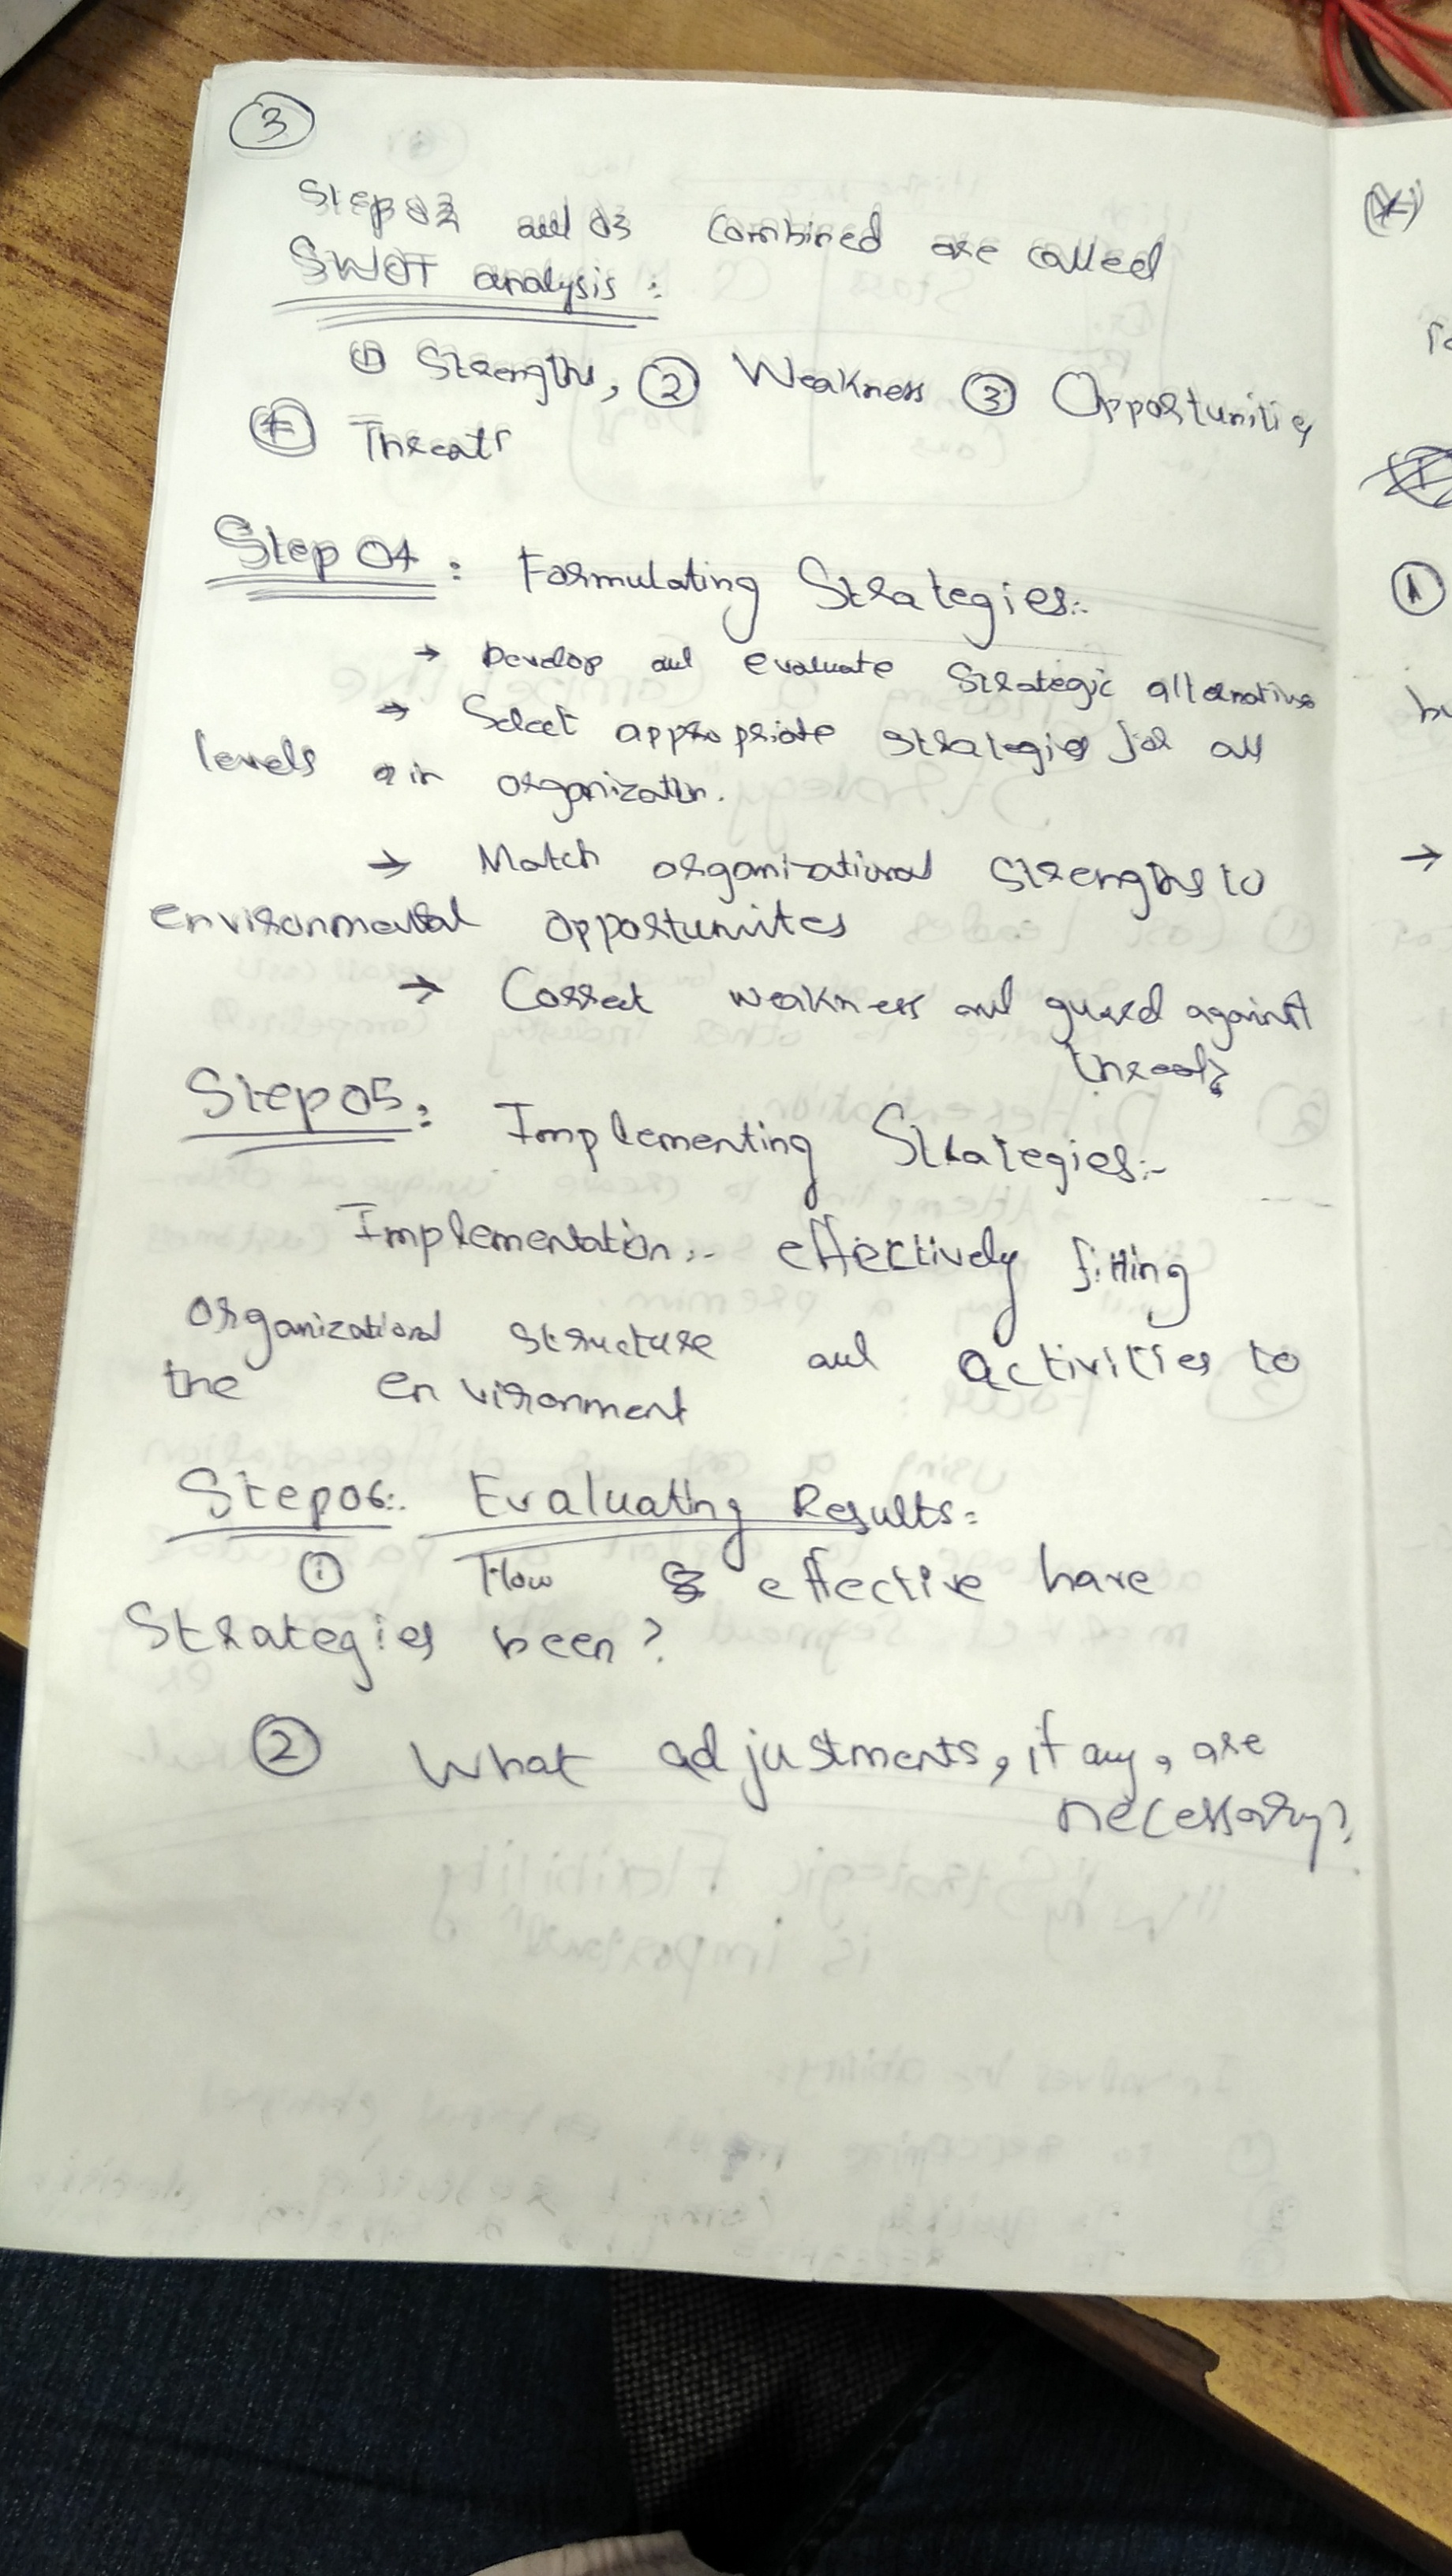 3
Step 02 and 03 combined are called
SWOT analysis :
① Strengths, ② Weakness ③ Opportunities
④ Threats
Step 04 : Formulating Strategies:-
→ Develop and evaluate Strategic alternatives
→ Select appropriate strategies for all
levels in organization.
→ Match organizational Strengths to
environmental opportunites
→ Correct weakness and guard against
threats
Step 05: Implementing Strategies:-
Implementation:- effectively fitting
organizational structure and activities to
the environment
Step 06:. Evaluating Results:
① How effective have
Strategies been?
② What adjustments, if any, are
necessary?